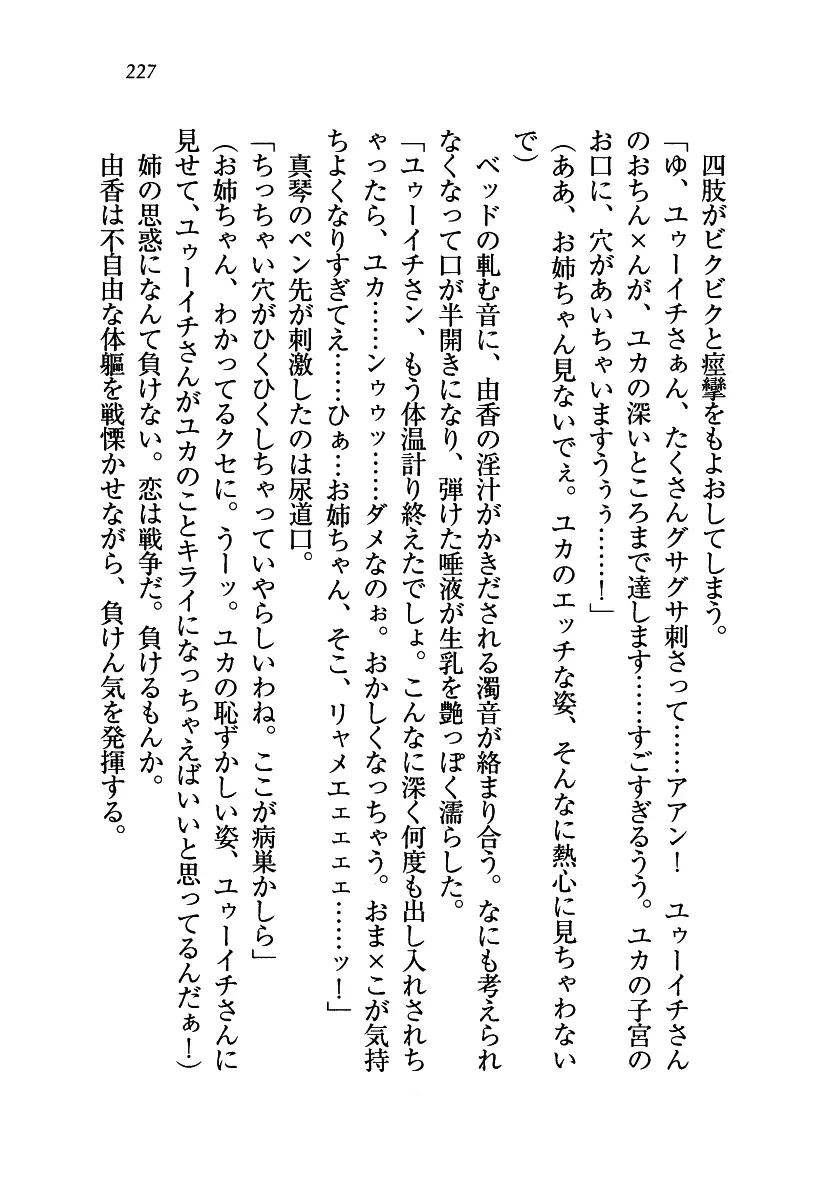 227
四肢がビクビクと痙攣をもよおしてしまう。
「ゆ、ユゥーイチさぁん、たくさんグサグサ刺さって……アアン！　ユゥーイチさん
のおちん×んが、ユカの深いところまで達します……すごすぎるうう。ユカの子宮の
お口に、穴があいちゃいますうぅぅ……！」
（ああ、お姉ちゃん見ないでぇ。ユカのエッチな姿、そんなに熱心に見ちゃわない
で）
ベッドの軋む音に、由香の淫汁がかきだされる濁音が絡まり合う。なにも考えられ
なくなって口が半開きになり、弾けた唾液が生乳を艶っぽく濡らした。
「ユゥーイチさン、もう体温計り終えたでしょ。こんなに深く何度も出し入れされち
ゃったら、ユカ……ンゥゥッ……ダメなのぉ。おかしくなっちゃう。おま×こが気持
ちよくなりすぎてえ……ひぁ…お姉ちゃん、そこ、リャメエェェェェ……ッ！」
真琴のペン先が刺激したのは尿道口。
「ちっちゃい穴がひくひくしちゃっていやらしいわね。ここが病巣かしら」
（お姉ちゃん、わかってるクセに。うーッ。ユカの恥ずかしい姿、ユゥーイチさんに
見せて、ユゥーイチさんがユカのことキライになっちゃえばいいと思ってるんだぁ！）
姉の思惑になんて負けない。恋は戦争だ。負けるもんか。
由香は不自由な体軀を戦慄かせながら、負けん気を発揮する。